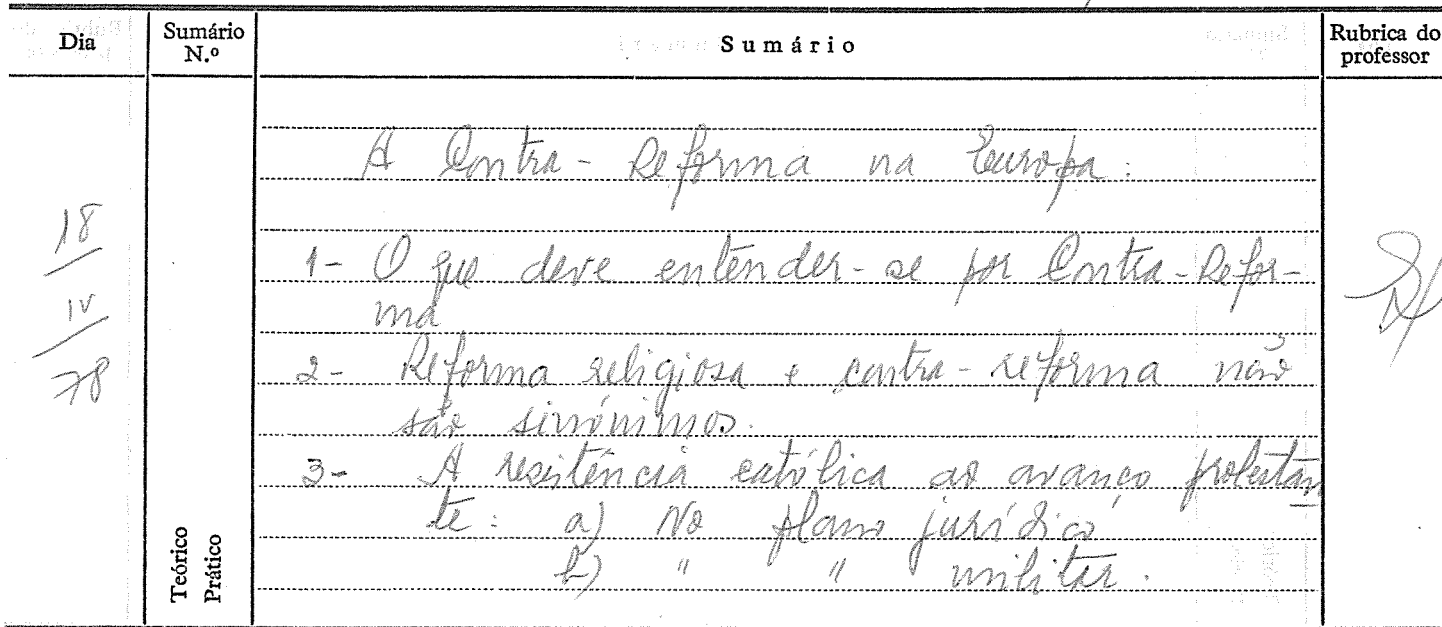 Dia
Sumário N.º
Sumário
Rubrica do professor
18
IV
78
Teórico
Prático
A Contra-Reforma na Europa:
1- O que deve entender-se por Contra-Refor-
ma
2- Reforma religiosa e contra-reforma não
são sinónimos.
3- A resistência católica ao avanço protestan
te: a) No plano jurídico
b) " " militar.